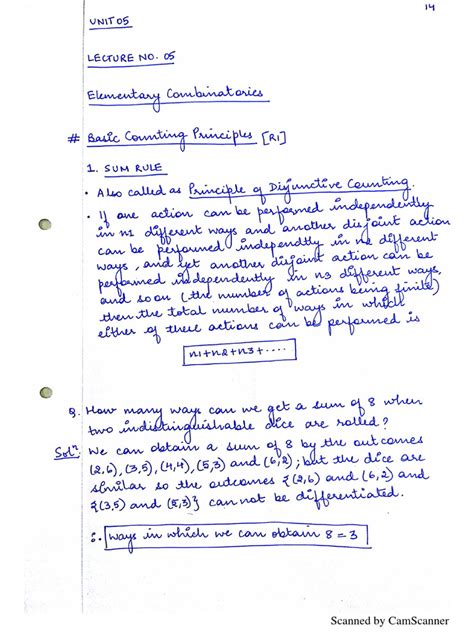 14
UNIT 05
LECTURE NO. 05
Elementary Combinatorics
# Basic Counting Principles [R1]
1. SUM RULE
• Also called as Principle of Disjunctive Counting.
• If one action can be performed independently
in n1 different ways and another disjoint action
can be performed independtly in n2 different
ways, and yet another disjoint action can be
performed independently in n3 different ways,
and so on (the number of actions being finite)
then the total number of ways in which
either of these actions can be performed is
n1+n2+n3+....
Q. How many ways can we get a sum of 8 when
two indistinguishable dice are rolled?
Solⁿ: We can obtain a sum of 8 by the outcomes
(2,6), (3,5), (4,4), (5,3) and (6,2); but the dice are
similar so the outcomes {(2,6) and (6,2) and
{(3,5) and (5,3)} can not be differentiated.
∴ ways in which we can obtain 8 = 3
Scanned by CamScanner